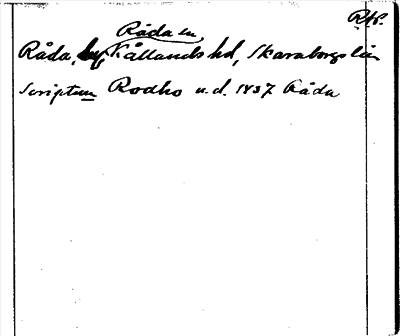 RAP.
Råda sn,
Råda, Kållands hd, Skaraborgs län
Scriptum Rodho u.d. 1437 Råda